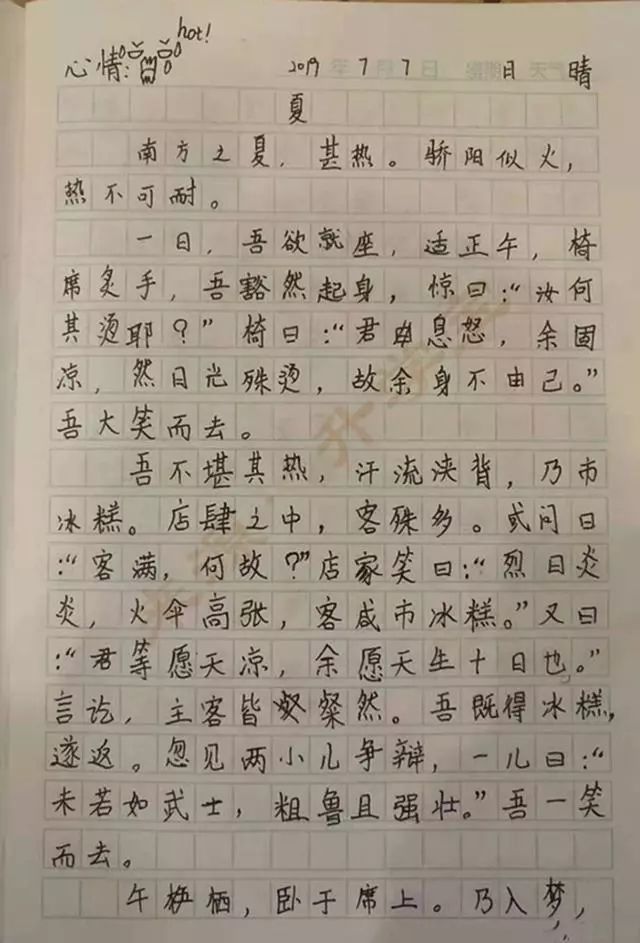 hot!
心情:
2019年7月7日 星期日 天气晴
夏
南方之夏，甚热。骄阳似火，
热不可耐。
一日，吾欲就座，适正午，椅
席炙手，吾豁然起身，惊曰:“汝何
其烫耶？”椅曰:“君息怒，余固
凉，然日光殊烫，故余身不由己。”
吾大笑而去。
吾不堪其热，汗流浃背，乃市
冰糕。店肆之中，客殊多。或问曰
:“客满，何故？”店家笑曰:“烈日炎
炎，火伞高张，客咸市冰糕。”又曰
:“君等愿天凉，余愿天生十日也。”
言讫，主客皆粲然。吾既得冰糕，
遂返。忽见两小儿争辩，一儿曰:“
未若如武士，粗鲁且强壮。”吾一笑
而去。
午栖，卧于席上。乃入梦，